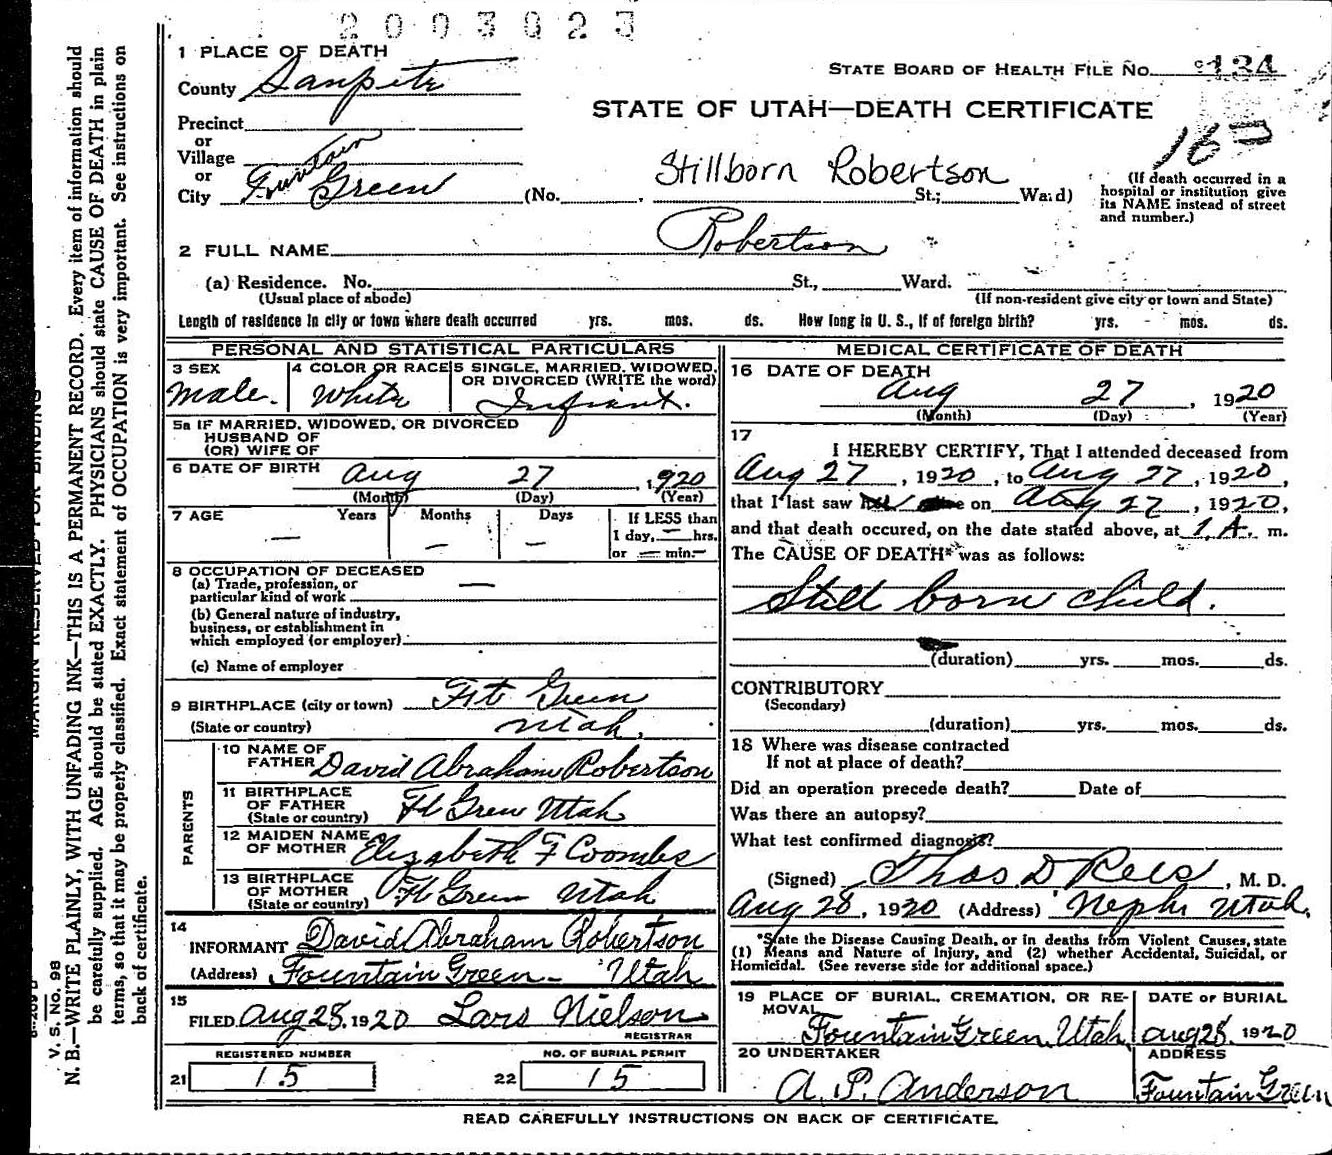 2003023
1 PLACE OF DEATH
County Sanpete
STATE BOARD OF HEALTH FILE No. 134
STATE OF UTAH—DEATH CERTIFICATE
Precinct
or
Village
or
City Fountain Green (No. , St.; Ward)
Stillborn Robertson
(If death occurred in a hospital or institution give its NAME instead of street and number.)
2 FULL NAME Robertson
(a) Residence. No. St., Ward.
(Usual place of abode) (If non-resident give city or town and State)
Length of residence in city or town where death occurred yrs. mos. ds. How long in U. S., if of foreign birth? yrs. mos. ds.
PERSONAL AND STATISTICAL PARTICULARS
3 SEX
Male.
4 COLOR OR RACE
White
5 SINGLE, MARRIED, WIDOWED, OR DIVORCED (WRITE the word)
Infant.
5a IF MARRIED, WIDOWED, OR DIVORCED
HUSBAND OF
(OR) WIFE OF
6 DATE OF BIRTH Aug 27, 1920
(Month) (Day) (Year)
7 AGE Years Months Days If LESS than
— — — 1 day, — hrs.
or — min.—
8 OCCUPATION OF DECEASED
(a) Trade, profession, or
particular kind of work —
(b) General nature of industry,
business, or establishment in
which employed (or employer)
(c) Name of employer
9 BIRTHPLACE (city or town) Ft Green
(State or country) Utah.
PARENTS
10 NAME OF
FATHER David Abraham Robertson
11 BIRTHPLACE
OF FATHER Ft Green Utah
(State or country)
12 MAIDEN NAME
OF MOTHER Elizabeth F Coombs
13 BIRTHPLACE
OF MOTHER Ft Green Utah
(State or country)
14
INFORMANT David Abraham Robertson
(Address) Fountain Green - Utah
15
FILED Aug 28, 1920 Lars Nielson
REGISTRAR
REGISTERED NUMBER NO. OF BURIAL PERMIT
21 15 22 15
MEDICAL CERTIFICATE OF DEATH
16 DATE OF DEATH
Aug 27, 1920
(Month) (Day) (Year)
17
I HEREBY CERTIFY, That I attended deceased from
Aug 27, 1920, to Aug 27, 1920,
that I last saw on Aug 27, 1920,
and that death occured, on the date stated above, at 1 A. m.
The CAUSE OF DEATH* was as follows:
Still born child.
(duration) yrs. mos. ds.
CONTRIBUTORY
(Secondary)
(duration) yrs. mos. ds.
18 Where was disease contracted
If not at place of death?
Did an operation precede death? Date of
Was there an autopsy?
What test confirmed diagnosis?
(Signed) Thos. D Rees, M. D.
Aug 28, 1920 (Address) Nephi Utah.
*State the Disease Causing Death, or in deaths from Violent Causes, state
(1) Means and Nature of Injury, and (2) whether Accidental, Suicidal, or
Homicidal. (See reverse side for additional space.)
19 PLACE OF BURIAL, CREMATION, OR RE-
MOVAL
Fountain Green, Utah
DATE OF BURIAL
Aug 28, 1920
20 UNDERTAKER
A. P. Anderson
ADDRESS
Fountain Green
READ CAREFULLY INSTRUCTIONS ON BACK OF CERTIFICATE.
MARGIN RESERVED FOR BINDING
V. S. NO. 98
N. B.—WRITE PLAINLY, WITH UNFADING INK—THIS IS A PERMANENT RECORD. Every item of information should
be carefully supplied. AGE should be stated EXACTLY. PHYSICIANS should state CAUSE OF DEATH in plain
terms, so that it may be properly classified. Exact statement of OCCUPATION is very important. See instructions on
back of certificate.